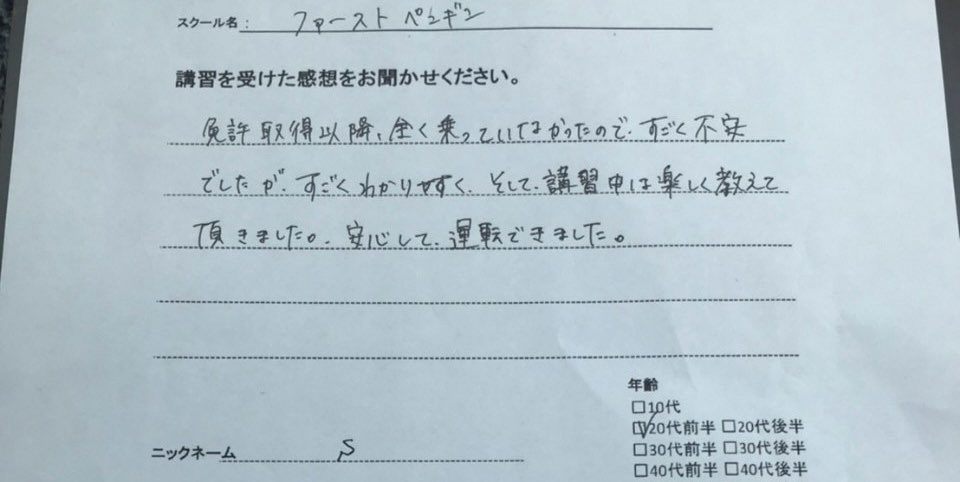 スクール名： ファーストペンギン
講習を受けた感想をお聞かせください。
免許取得以降、全く乗っていなかったので、すごく不安
でしたが、すごくわかりやすく、そして、講習中は楽しく教えて
頂きました。安心して、運転できました。
年齢
□10代
☑20代前半 □20代後半
ニックネーム S
□30代前半 □30代後半
□40代前半 □40代後半